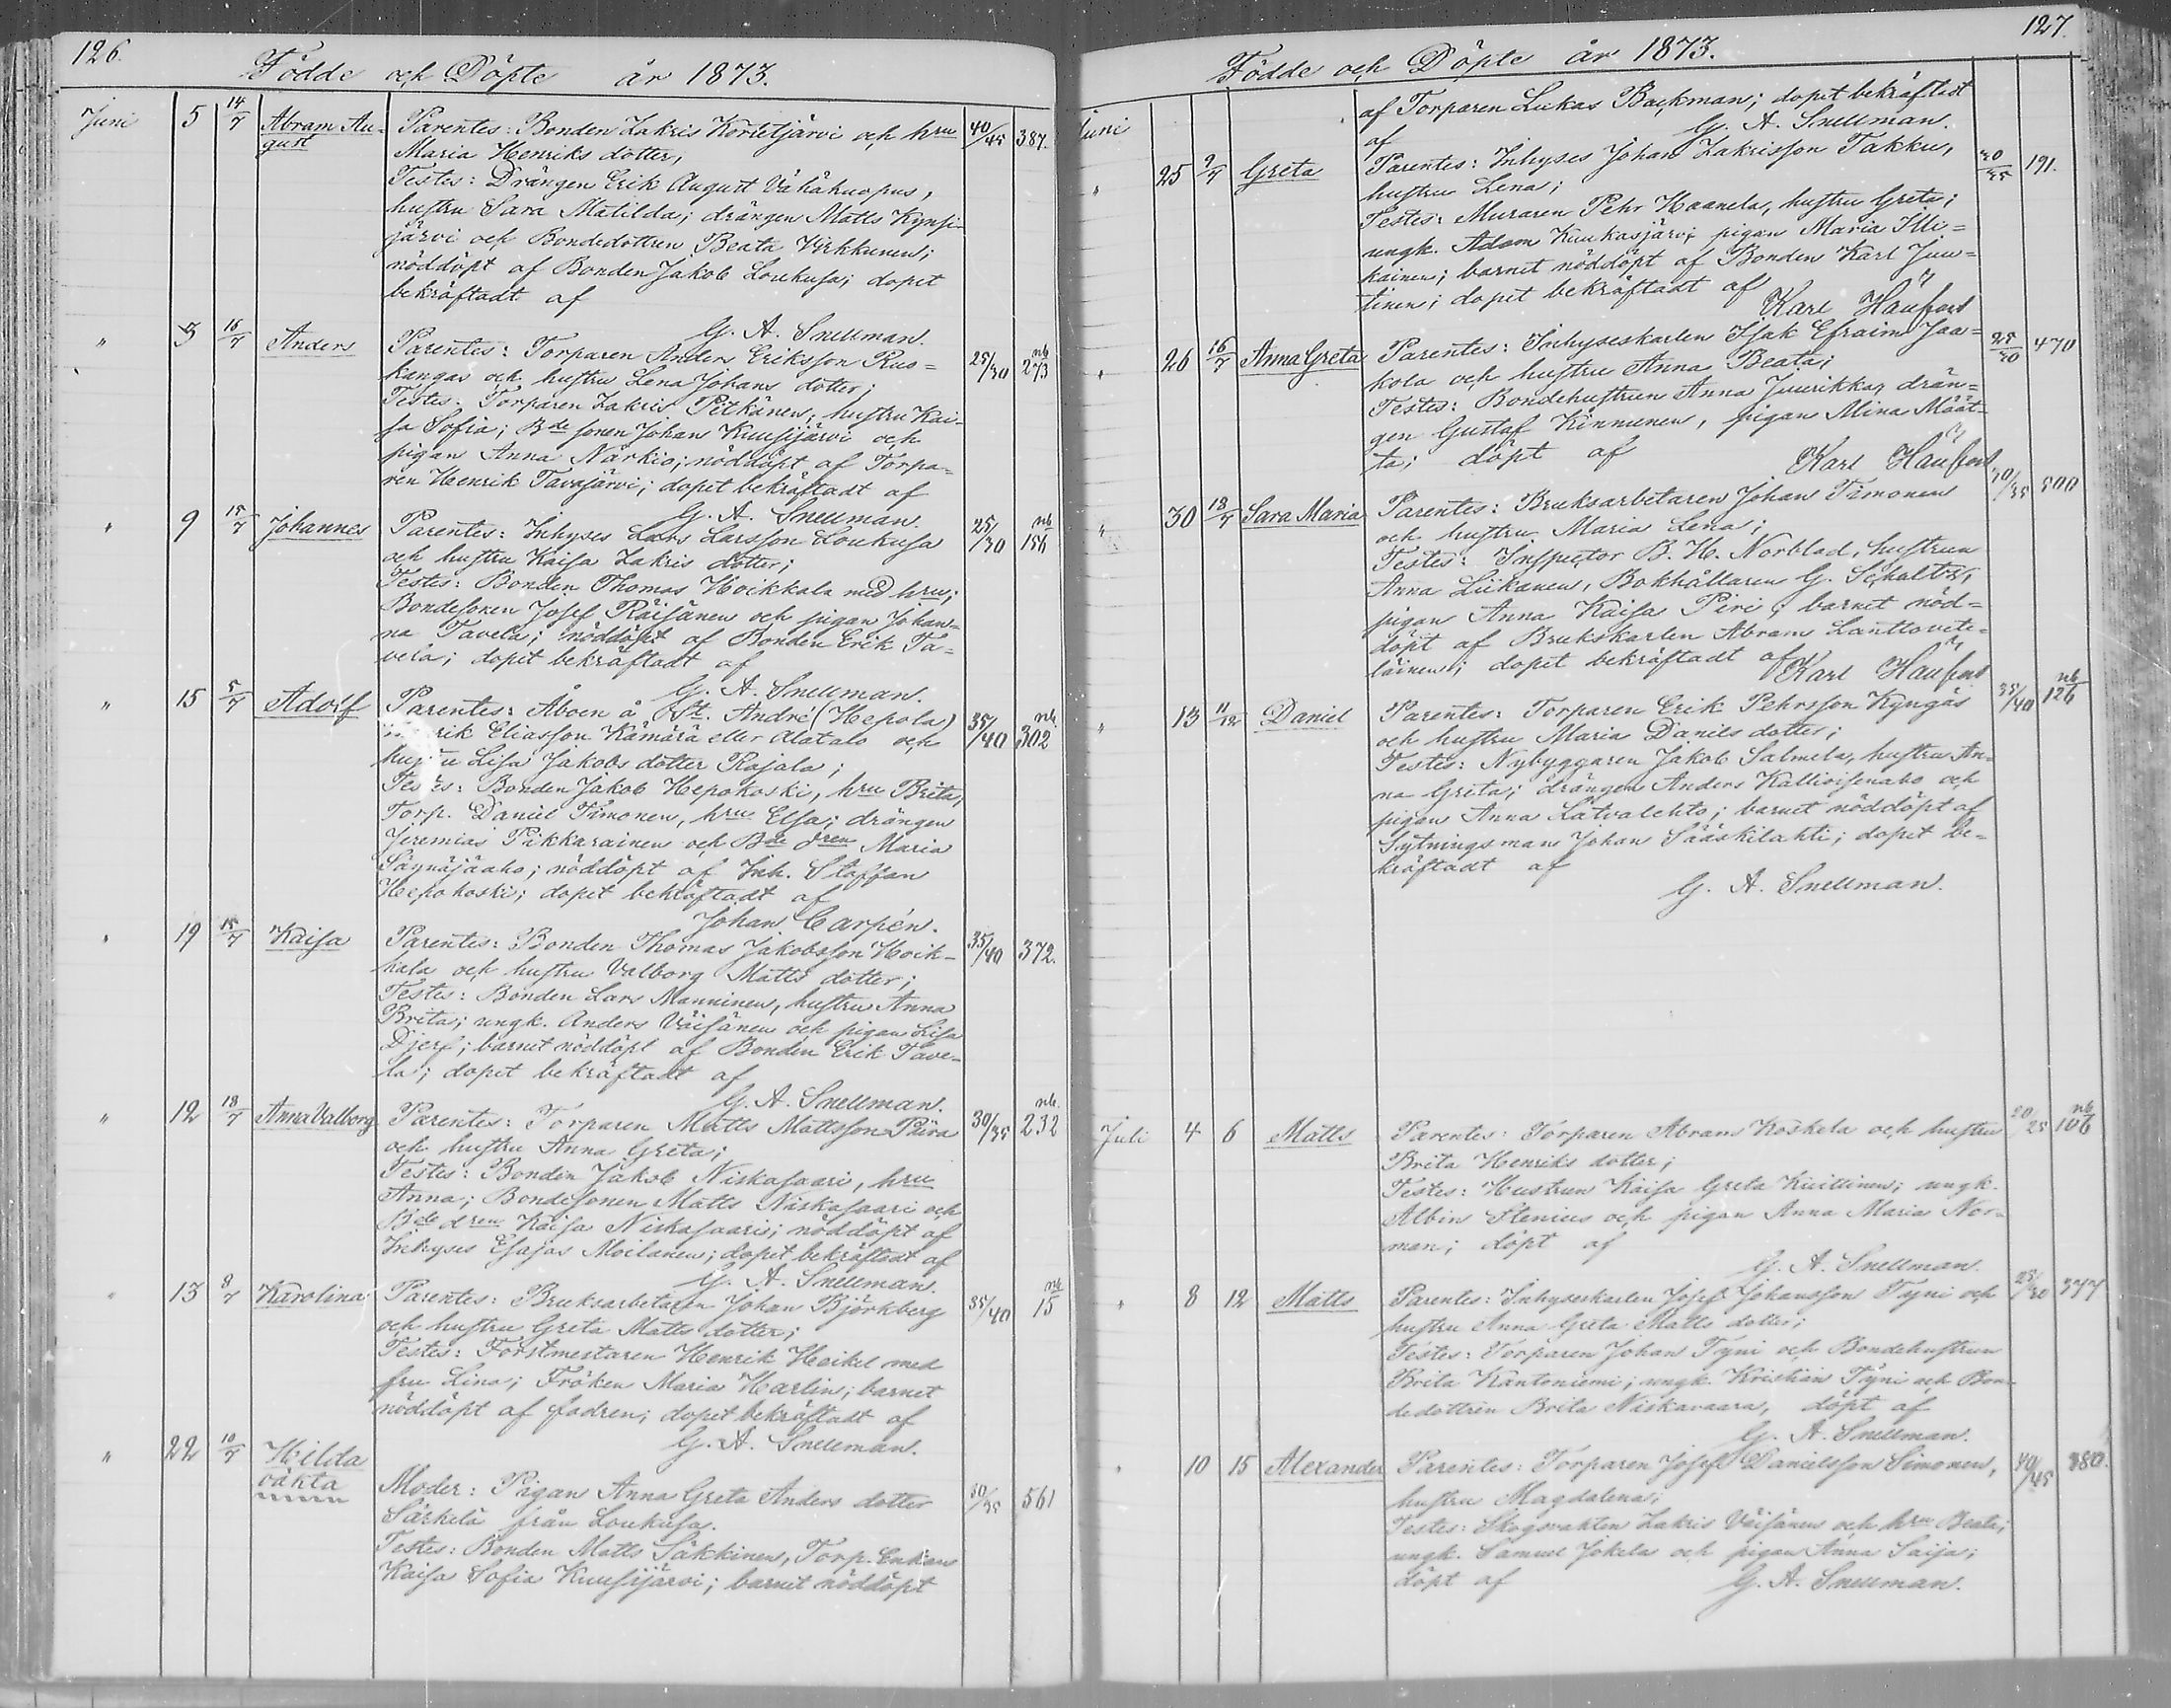 126.
Födde och Döpte år 1873.
Juni 5 14/7 Abram Au- Parentes: Bonden Zakris Kortetjärvi och hru 40/45 387.
gust Maria Henriks dotter,
Testes: Drängen Erik August Vähähuopus,
hustru Sara Matilda; drängen Matts Kynsi-
järvi och Bondedottren Beata Virkkunen;
nöddöpt af Bonden Jakob Loukusa; dopet
bekräftadt af
G. A. Snellman.
" 5 16/7 Anders Parentes: Torparen Anders Eriksson Rus= 25/30 nb 273
kangas och hustru Lena Johans dotter;
Testes: Torparen Zakris Pitkänen, hustru Kai-
sa Sofia; Bde sonen Johan Kuusijärvi och
pigan Anna Närkio; nöddöpt af Torpa-
ren Henrik Tavajärvi; dopet bekräftadt af
G. A. Snellman.
" 9 15/7 Johannes Parentes: Inhyses Lars Larsson Loukusa 25/30 nb 156
och hustru Kaisa Zakris dotter;
Testes: Bonden Thomas Hoikkala med hru;
Bondesonen Josef Räisänen och pigan Johan=
na Tavela; nöddöpt af Bonden Erik Ta=
vela; dopet bekräftadt af
G. A. Snellman.
" 15 5/7 Adolf Parentes: Åboen å St. André (Hepola) 35/40 nb. 302
Eliasson Kämärä eller Alatalo och
Lisa Jakobs dotter Rajala;
Testes: Bonden Jakob Hepokoski, hru Brita,
Torp. Daniel Timonen, hru Elsa; drängen
Jeremias Pikkarainen och Bde dren Maria
Säynäjäaho; nöddöpt af Inh. Staffan
Hepokoski; dopet bekräftadt af
Johan Carpén.
" 19 15/7 Kaisa Parentes: Bonden Thomas Jakobsson Hoik- 35/40 372.
kala och hustru Valborg Matts dotter;
Testes: Bonden Lars Manninen, hustru Anna
Brita; ungk. Anders Väisänen och pigan Lisa
Djerf; barnet nöddöpt af Bonden Erik Tave-
la; dopet bekräftadt af
G. A. Snellman.
" 12 18/7 Anna Valborg Parentes: Torparen Matts Mattsson Piira 30/35 nb. 232
och hustru Anna Greta;
Testes: Bonden Jakob Niskasaari, hru
Anna; Bondesonen Matts Niskasaari och
Bde dren Kaisa Niskasaari; nöddöpt af
Inhyses Esajas Moilanen; dopet bekräftadt af
G. A. Snellman.
" 13 8/7 Karolina Parentes: Bruksarbetaren Johan Björkberg 35/40 nb 15
och hustru Greta Matts dotter;
Testes: Forstmestaren Henrik Heikel med
fru Lina; Fröken Maria Harlin; barnet
nöddöpt af fadren; dopet bekräftadt af
G. A. Snellman.
" 22 10/7 Hilda
oäkta Moder: Pigan Anna Greta Anders dotter 30/35 561
Särkelä från Loukusa.
Testes: Bonden Matts Säkkinen, Torp. Enkan
Kaisa Sofia Kuusijärvi; barnet nöddöpt
127.
Födde och Döpte år 1873.
Juni af Torparen Lukas Backman; dopet bekräftadt
af G. A. Snellman.
" 25 9/7 Greta Parentes: Inhyses Johan Zakrisson Takku, 30/35 191.
hustru Lena;
Testes: Muraren Pehr Haanela, hustru Greta;
ungk. Adam Kuukasjärvi; pigan Maria Illi=
kainen; barnet nöddöpt af Bonden Karl Juu=
tinen; dopet bekräftadt af
Karl Haufors
" 26 16/7 Anna Greta Parentes: Inhyseskarlen Isak Efraim Jaa= 25/30 470
kola och hustru Anna Beata;
Testes: Bondehustrun Anna Juurikka, drän=
gen Gustaf Kinnunen, pigan Mina Määt-
ta; döpt af
Karl Haufors
" 30 18/7 Sara Maria Parentes: Bruksarbetaren Johan Timonen 30/35 500
och hustru Maria Lena;
Testes: Inspector B. H. Norblad, hustrun
Anna Liikanen, Bokhållaren G. Schultz,
pigan Anna Kaisa Piri; barnet nöd=
döpt af Brukskarlen Abram Lanttovete-
läinen; dopet bekräftadt af
Karl Haufors
" 13 11/12 Daniel Parentes: Torparen Erik Pehrsson Kyngäs 35/40 nb 126
och hustru Maria Daniels dotter;
Testes: Nybyggaren Jakob Salmela, hustru An-
na Greta; drängen Anders Kallioisenaho och
pigan Anna Latvalehto; barnet nöddöpt af
Sytningsman Johan Sääskilahti; dopet be-
kräftadt af
G. A. Snellman.
Juli 4 6 Matts Parentes: Torparen Abram Koskela och hustru 20/25 nb 106
Brita Henriks dotter;
Testes: Hustrun Kaisa Greta Kuittinen; ungk.
Albin Stenius och pigan Anna Maria Nor-
man; döpt af
G. A. Snellman.
" 8 12 Matts Parentes: Inhyseskarlen Josef Johansson Tyni och 25/30 377
hustru Anna Greta Matts dotter;
Testes: Torparen Johan Tyni och Bondehustrun
Brita Kantoniemi; ungk. Kristian Tyni och Bon-
dedottren Brita Niskavaara, döpt af
G. A. Snellman.
" 10 15 Alexander Parentes: Torparen Josef Danielsson Simonen, 40/45 380.
hustru Magdalena;
Testes: Skogsvakten Zakris Väisänen och hru Beata;
ungk. Samuel Jokela och pigan Anna Saija;
döpt af G. A. Snellman.